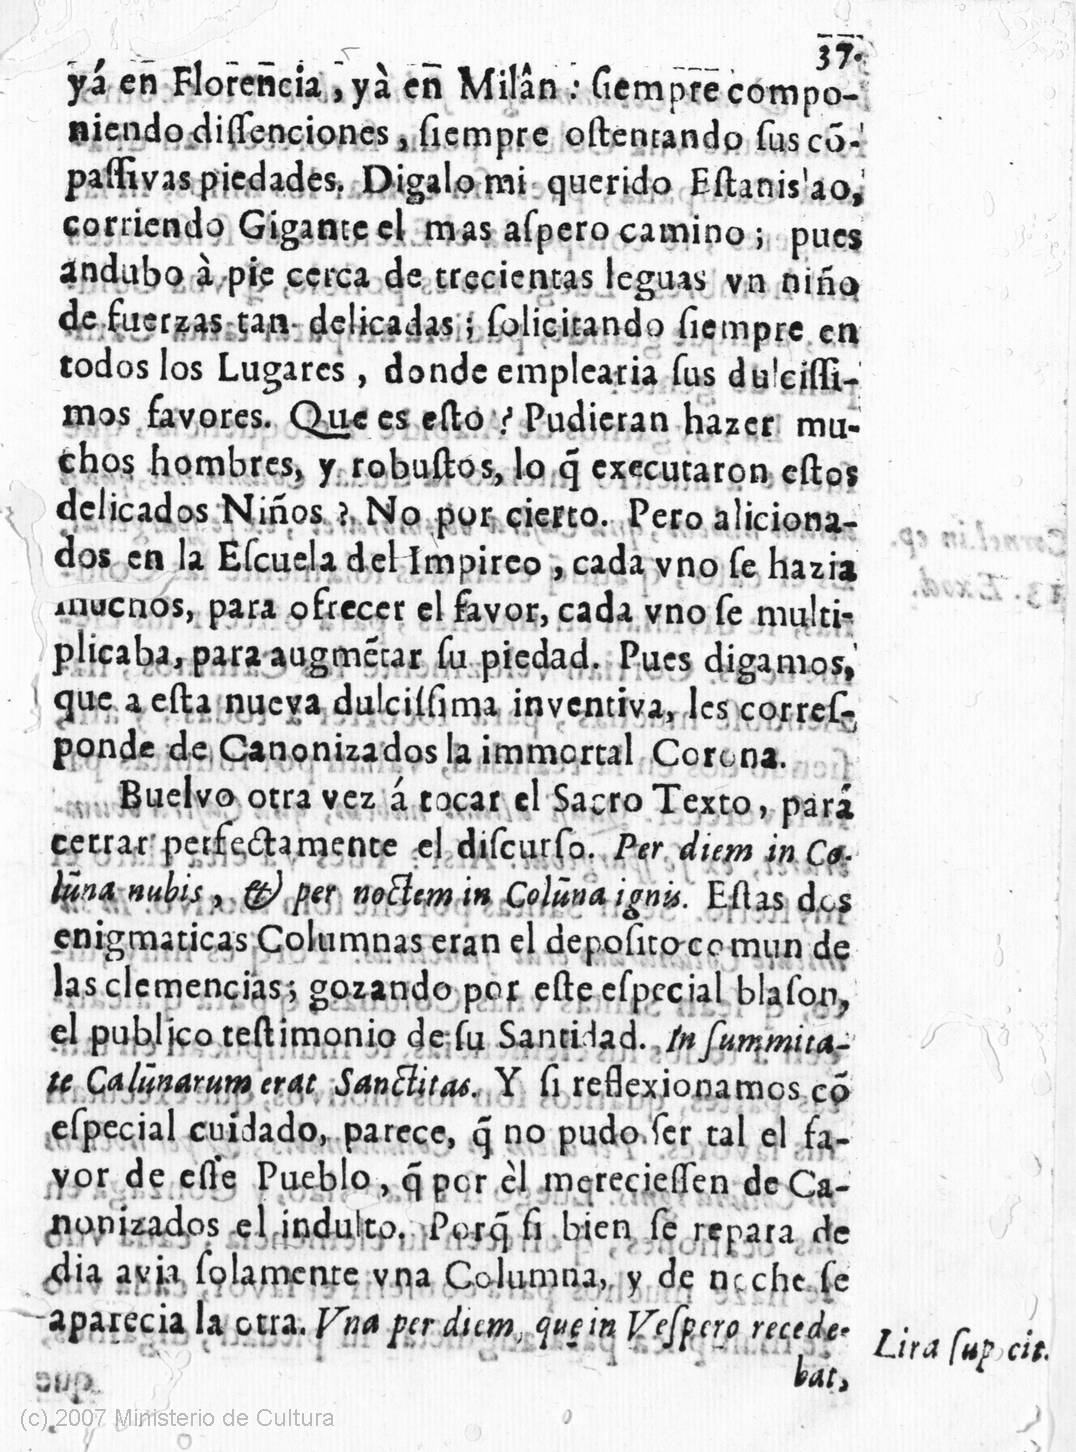 37.
yá en Florencia, yà en Milân : ſiempre compo-
niendo diſſenciones, ſiempre oſtentando ſus cõ-
paſſivas piedades. Digalo mi querido Eſtanislao,
corriendo Gigante el mas aſpero camino ; pues
andubo à pie cerca de trecientas leguas vn niño
de fuerzas tan delicadas ; ſolicitando ſiempre en
todos los Lugares , donde emplearia ſus dulciſſi-
mos favores. Que es eſto ? Pudieran hazer mu-
chos hombres, y robuſtos, lo q̃ executaron eſtos
delicados Niños ? No por cierto. Pero aliciona-
dos en la Eſcuela del Impireo , cada vno ſe hazia
muchos, para ofrecer el favor, cada vno ſe multi-
plicaba, para augmẽtar ſu piedad. Pues digamos,
que a eſta nueva dulciſſima inventiva, les correſ-
ponde de Canonizados la immortal Corona.
Buelvo otra vez á tocar el Sacro Texto, pará
cerrar perfectamente el diſcurſo. Per diem in Co-
lũna nubis, & per noctem in Colũna ignis. Eſtas dos
enigmaticas Columnas eran el depoſito comun de
las clemencias ; gozando por eſte eſpecial blaſon,
el publico teſtimonio de ſu Santidad. In ſummita-
te Calũnarum erat Sanctitas. Y ſi reflexionamos cõ
eſpecial cuidado, parece, q̃ no pudo ſer tal el fa-
vor de eſſe Pueblo, q̃ por èl merecieſſen de Ca-
nonizados el indulto. Porq̃ ſi bien ſe repara de
dia avia ſolamente vna Columna, y de noche ſe
aparecia la otra. Vna per diem, que in Veſpero recede-
Lira ſup cit.
bat,
(c) 2007 Ministerio de Cultura